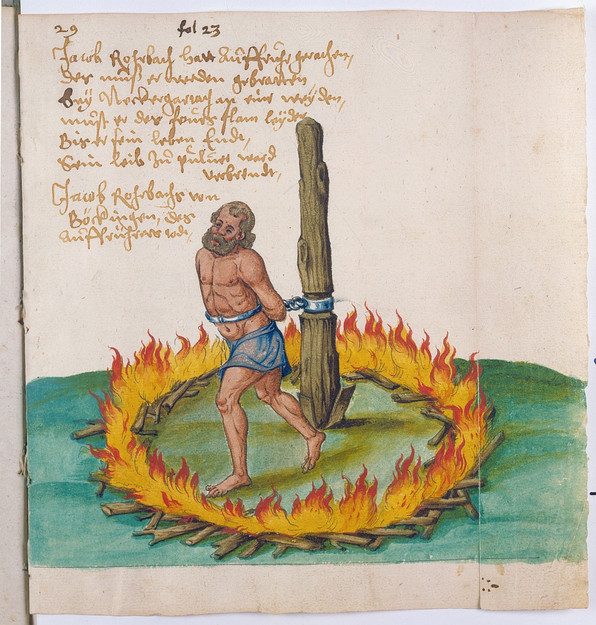 29
fol 23
Jacob Rohrbach hatt Auffruhr gerachen,
der must er werden gebratten
bey Neckergartach an eine weyden,
must er des feurs flam leyden
Bis er sein leben Endt,
Sein leib zu puluer ward
verbrendt,
Jacob Rohrbachs von
Böckingen, des
Auffrührers